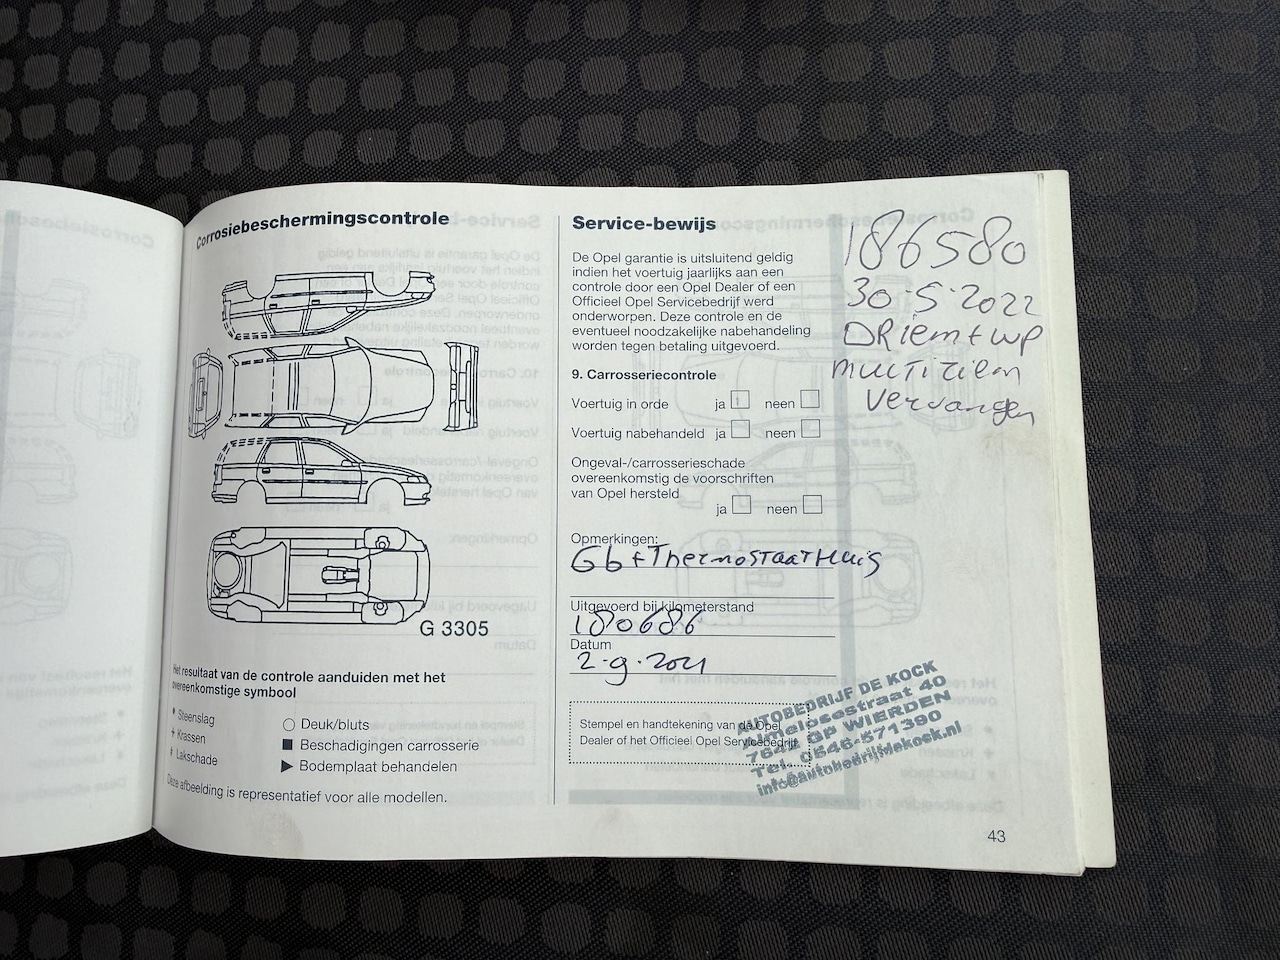 Corrosiebeschermingscontrole
G 3305
Het resultaat van de controle aanduiden met het
overeenkomstige symbool
Steenslag
+ Krassen
Lakschade
○ Deuk/bluts
■ Beschadigingen carrosserie
▶ Bodemplaat behandelen
Deze afbeelding is representatief voor alle modellen.
Service-bewijs
De Opel garantie is uitsluitend geldig
indien het voertuig jaarlijks aan een
controle door een Opel Dealer of een
Officieel Opel Servicebedrijf werd
onderworpen. Deze controle en de
eventueel noodzakelijke nabehandeling
worden tegen betaling uitgevoerd.
9. Carrosseriecontrole
Voertuig in orde ja neen
Voertuig nabehandeld ja neen
Ongeval-/carrosserieschade
overeenkomstig de voorschriften
van Opel hersteld
ja neen
Opmerkingen:
Gb + Thermostaathuis
Uitgevoerd bij kilometerstand
180686
Datum
2-9-2021
Stempel en handtekening van de Opel
Dealer of het Officieel Opel Servicebedrijf
AUTOBEDRIJF DE KOCK
Almelosestraat 40
7642 GP WIERDEN
Tel. 0546-571390
info@autobedrijfdekock.nl
186580
30-5-2022
DRiem + WP
MULTIRiem
Vervangen
43